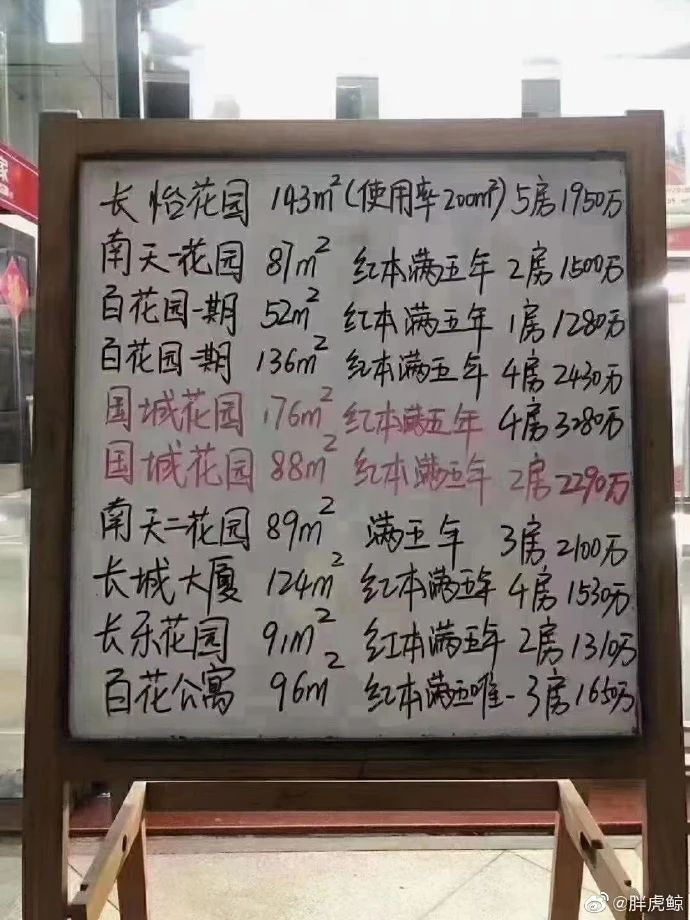 长怡花园 143m²(使用率200m²) 5房 1950万
南天一花园 87m² 红本满五年 2房 1500万
百花园一期 52m² 红本满五年 1房 1280万
百花园一期 136m² 红本满五年 4房 2430万
国城花园 176m² 红本满五年 4房 3280万
国城花园 88m² 红本满五年 2房 2290万
南天二花园 89m² 满五年 3房 2100万
长城大厦 124m² 红本满五年 4房 1530万
长乐花园 91m² 红本满五年 2房 1310万
百花公寓 96m² 红本满五唯一 3房 1650万
家
@胖虎鲸